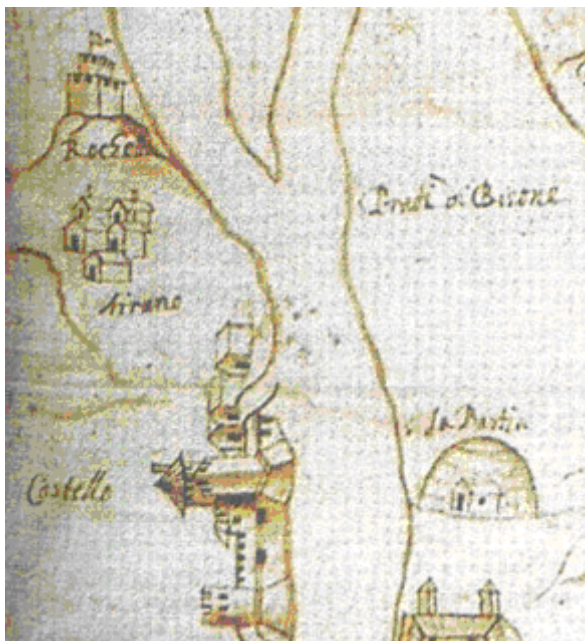 Rocheta
Pradi di Bisone
Airuno
la Bastia
Castello